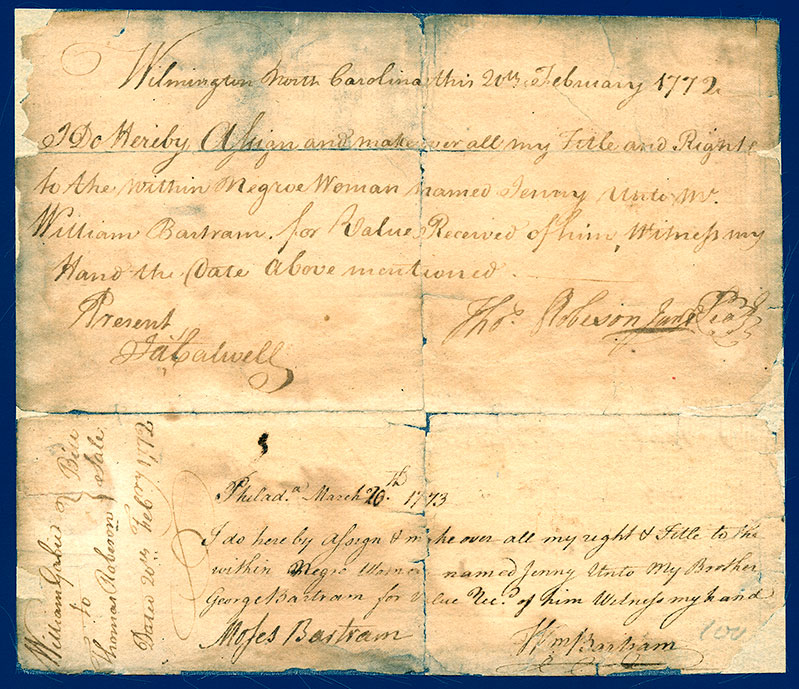 Wilmington North Carolina this 20th February 1772
I Do Hereby Assign and make over all my Title and Right
to the within Negroe Woman named Jenny Unto Mr.
William Bartram. for Value Received of him, Witness my
Hand the Date Above mentioned.
Present
Thos. Robeson Junr Seal
Ja Calwell
William Gabie
to
Thomas Robeson
Bill
of Sale
Dated 20th Febry 1772
Philad.a March 20th. 1773
I do here by Assign & make over all my right & Title to the
within Negro Woman named Jenny Unto My Brother
George Bartram for Value Rec.d of him Witness my hand
Moses Bartram
Wm Bartram
100